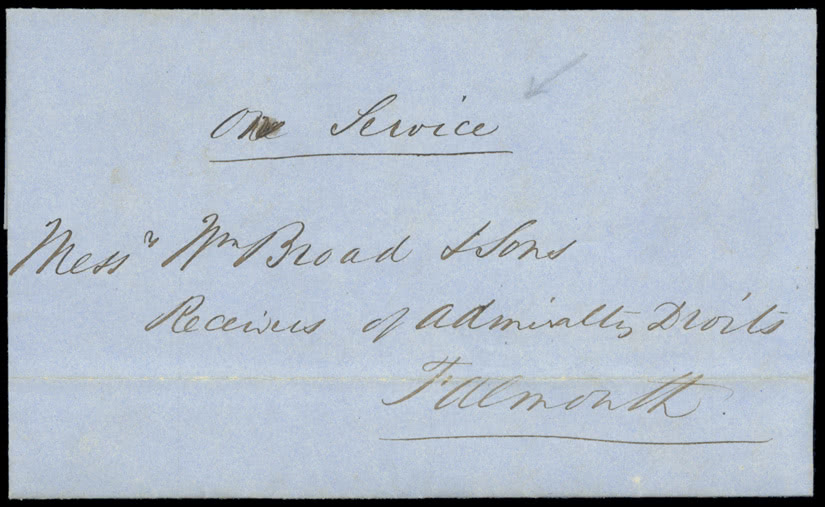 One Service
Messrs Wm Broad & Sons
Receivers of Admiralty Droits
Falmouth